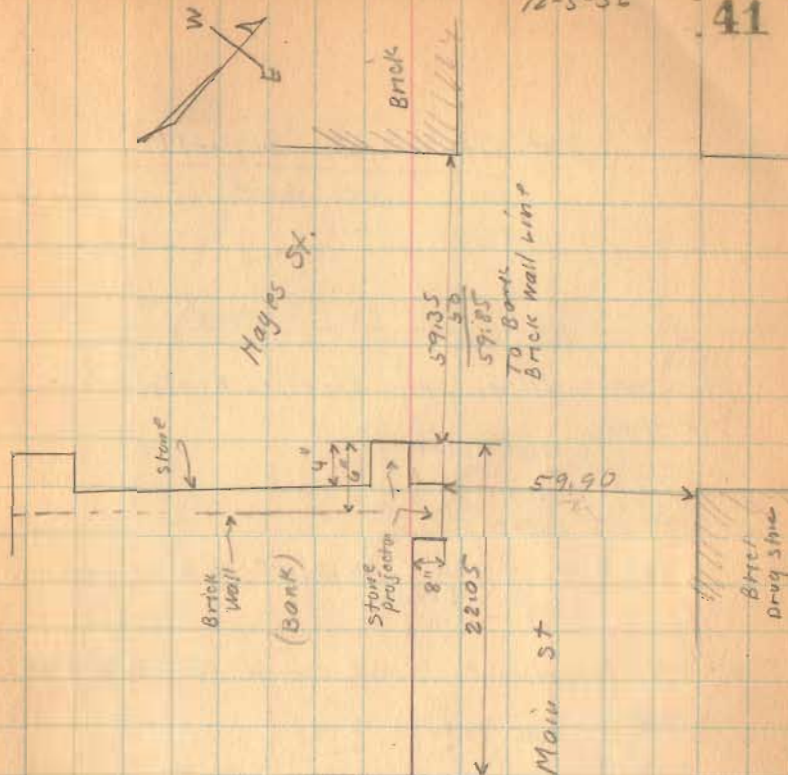 41
W
E
Brick
Hayes St.
59.35
50
59.85
To Bank
Brick Wall Line
Stone
4"
6"
59.90
Brick
Wall
(Bank)
Stone
projector
8"
22.05
Main St
Brick
Drug Store